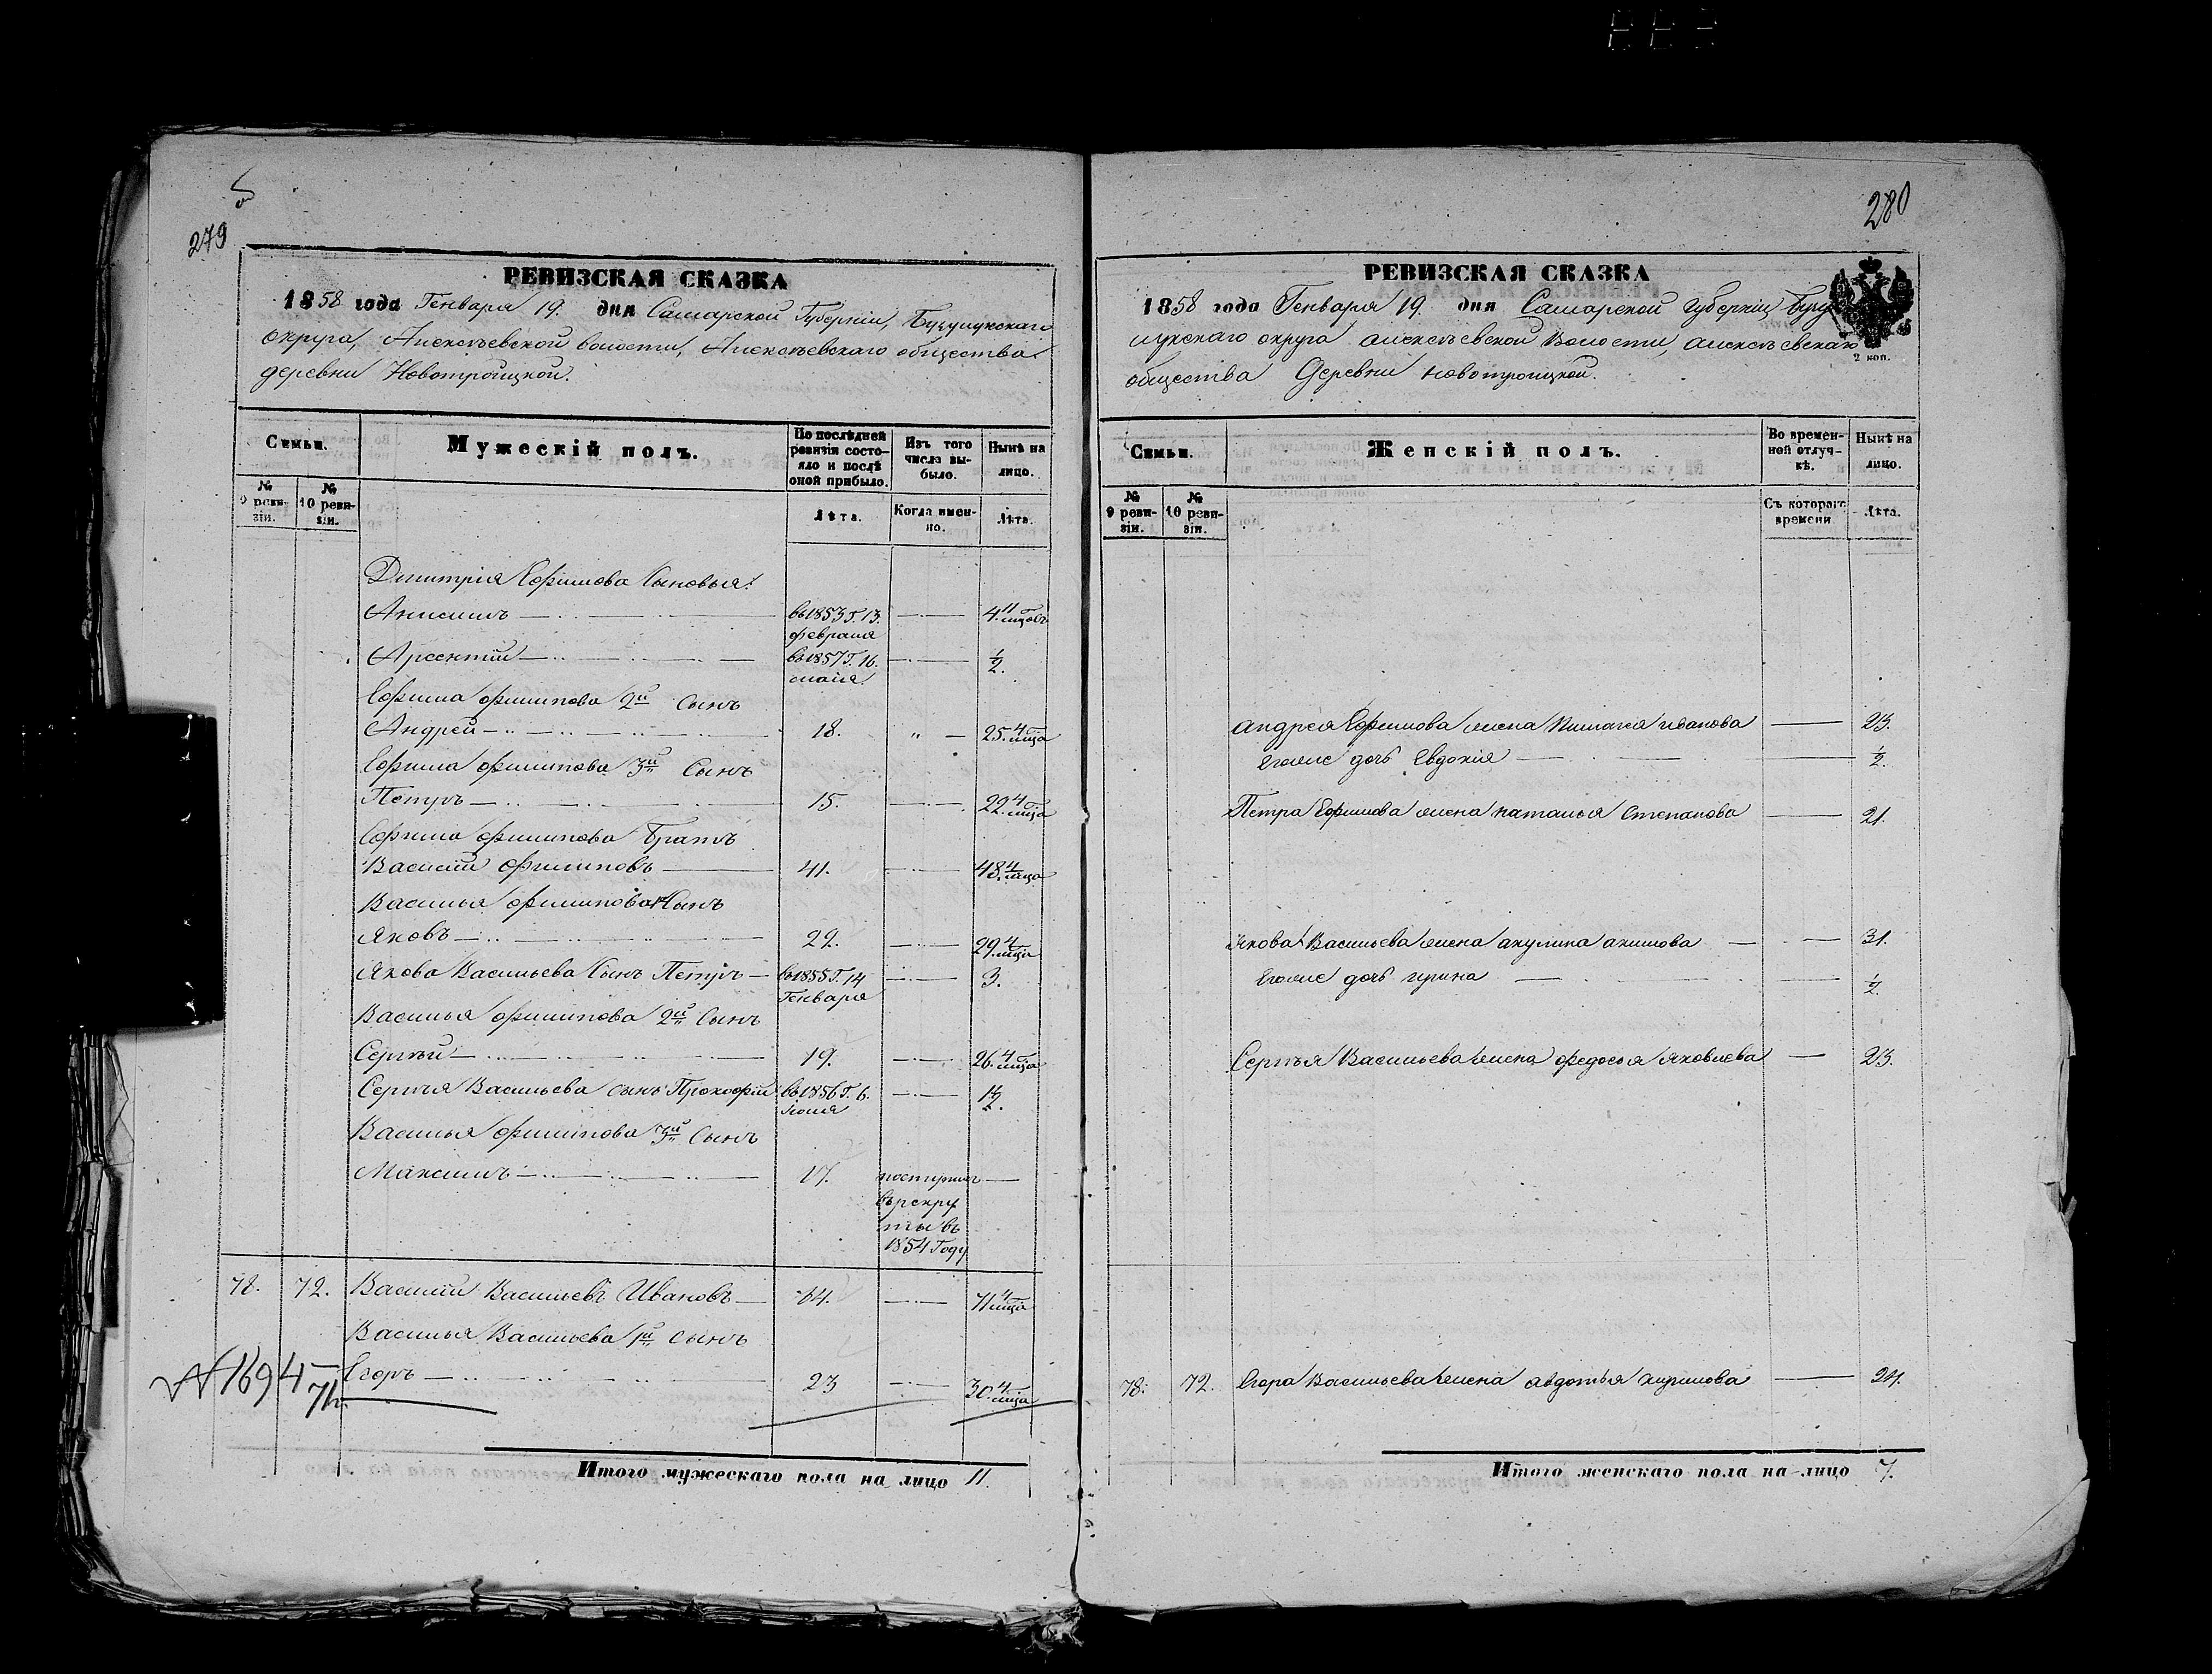 279
РЕВИЗСКАЯ СКАЗКА
1858 года Генваря 19. дня Самарской Губерніи, Бузулукскаго
округа, Алексѣевской волости, Алексѣевскаго общества
деревни Новотроицкой.
Семьи.
Мужескій полъ.
По послѣдней ревизіи состояло и послѣ оной прибыло.
Изъ того числа выбыло.
Нынѣ на лицо.
№ 9 ревизіи.
№ 10 ревизіи.
Лѣта.
Когда именно.
Лѣта.
Дмитрія Ефимова Сыновья:
Анисимъ въ 1853 г. 13. февраля 4 11/мцовъ
Арсентій въ 1857 г. 16. маія ½.
Ефима Филипова 2й Сынъ
Андрей 18. " 25. 4/мца
Ефима Филипова 3й Сынъ
Петръ 15. 22. 4/мца
Ефима Филипова Братъ
Василій Филиповъ 41. 48. 4/мца
Василья Филипова 1й Сынъ
Яковъ 22. 29. 4/мца
Якова Васильева Сынъ Петръ въ 1855 г. 14 Генваря 3.
Василья Филипова 2й Сынъ
Сергѣй 19. 26. 4/мца
Сергѣя Васильева сынъ Прокофій въ 1856 г. 6. Іюля 1½.
Василья Филипова 3й Сынъ
Максимъ 17. поступилъ
въ рекру
ты въ
1854 Году
78. 72. Василій Васильевъ Ивановъ 64. 71 4/мца
Василья Васильева 1й Сынъ
Егоръ 23 30. 4/мца
№ 1694
Итого мужескаго пола на лицо 11.
280
РЕВИЗСКАЯ СКАЗКА
1858 года Генваря 19. дня Самарской Губерніи Бузу
лукскаго округа Алексѣевской Волости, Алексѣевскаго
общества Деревни Новотроицкой.
2 коп.
Семьи.
Женскій полъ.
Во временной отлучкѣ.
Нынѣ на лицо.
№ 9 ревизіи.
№ 10 ревизіи.
Съ котораго времени
Лѣта.
Андрея Ефимова жена Пилагея Иванова 23.
Егоже дочь Евдокія ½.
Петра Ефимова жена Наталья Степанова 21.
Якова Васильева жена Акулина Акимова 31.
Егоже дочь Ирина ½.
Сергѣя Васильева жена Федосья Яковлева 23.
78. 72. Егора Васильева жена Авдотья Кирилова 24.
Итого женскаго пола на-лицо 7.